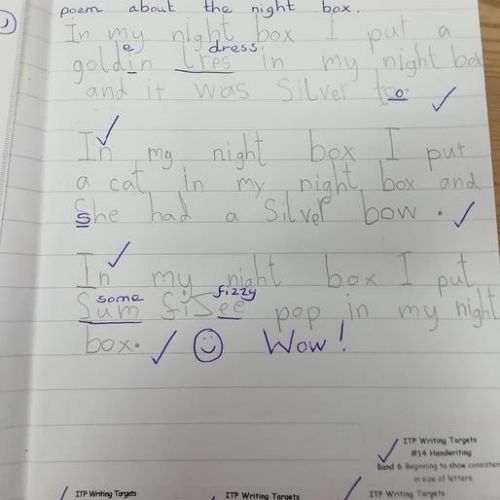 poem about the night box.
In my night box I put a
e dress
goldin tres in my night box
and it was Silver too.
In my night box I put
a cat in my night box and
She had a Silver bow.
In my night box I put
some fizzy
Sum fisee pop in my night
box. Wow!
ITP Writing Targets
#14 Handwriting
Band 6 Beginning to show consisten
in size of letters
ITP Writing Targets
ITP Writing Targets
ITP Writing Targets